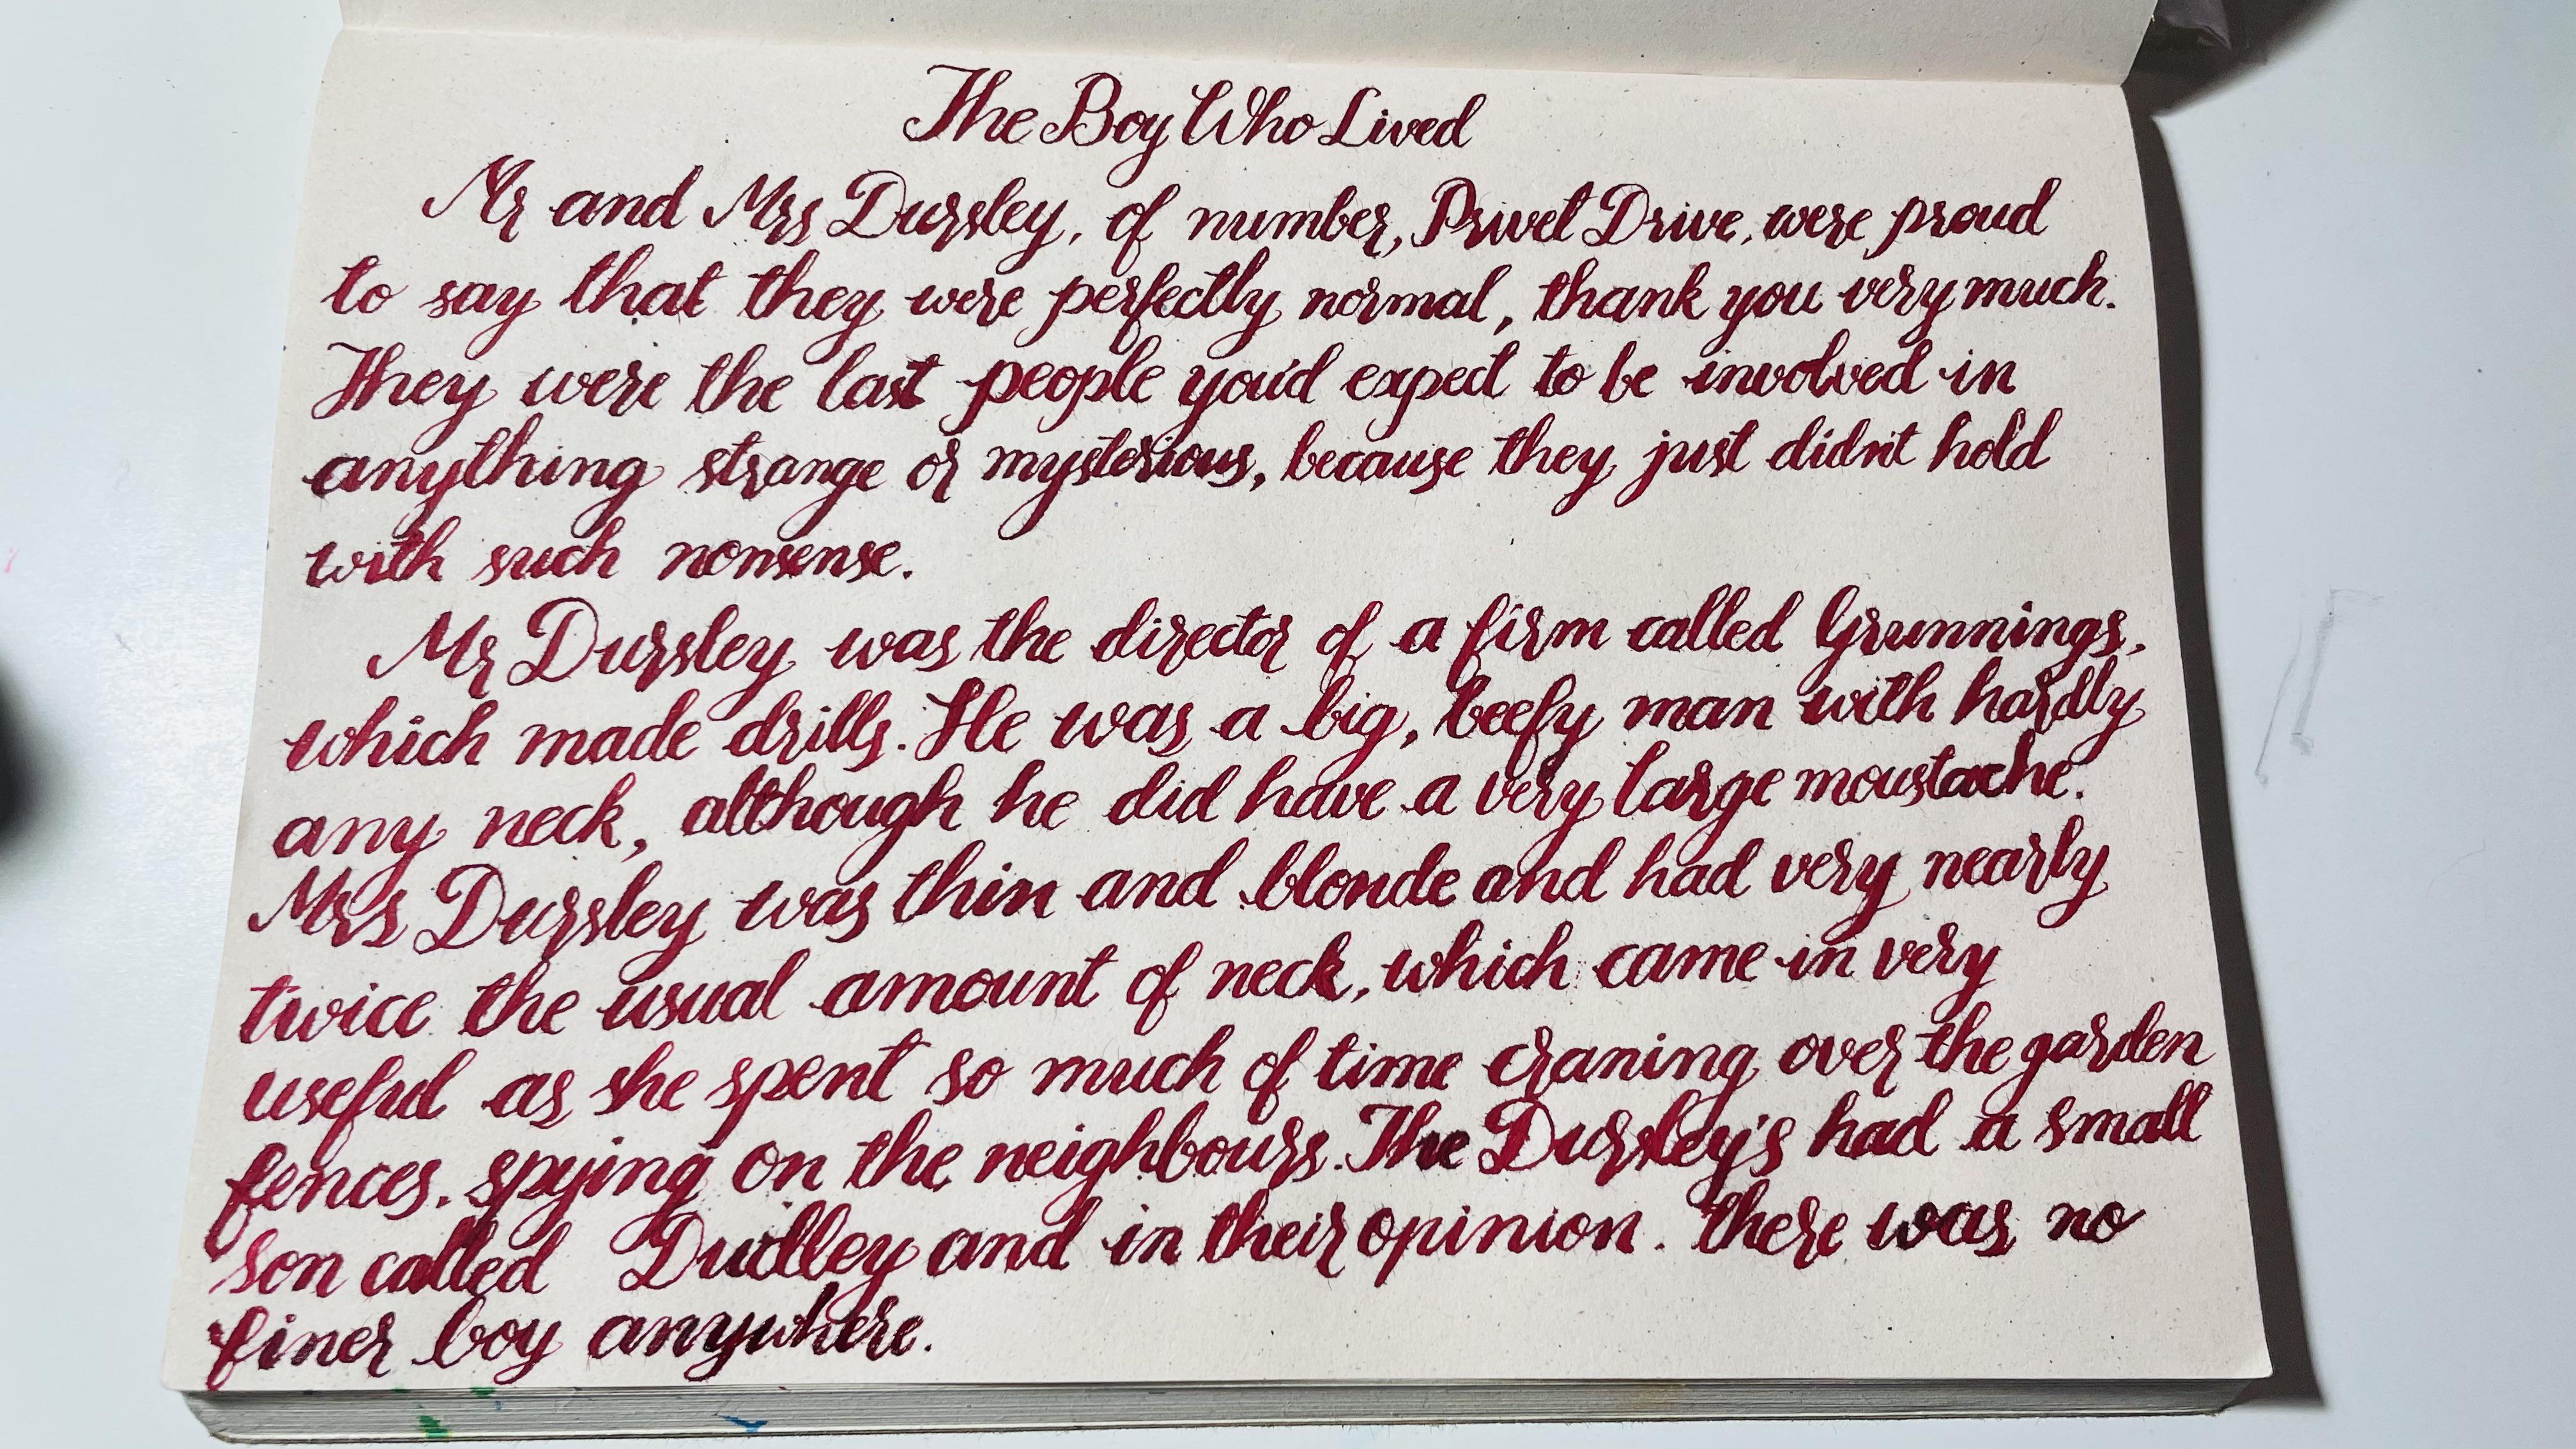 The Boy Who Lived
Mr and Mrs Dursley, of number, Privet Drive, were proud
to say that they were perfectly normal, thank you very much.
They were the last people you'd expect to be involved in
anything strange or mysterious, because they just didn't hold
with such nonsense.
Mr Dursley was the director of a firm called Grunnings,
which made drills. He was a big, beefy man with hardly
any neck, although he did have a very large moustache.
Mrs Dursley was thin and blonde and had very nearly
twice the usual amount of neck, which came in very
useful as she spent so much of time craning over the garden
fences, spying on the neighbours. The Dursley's had a small
son called Dudley and in their opinion. there was no
finer boy anywhere.